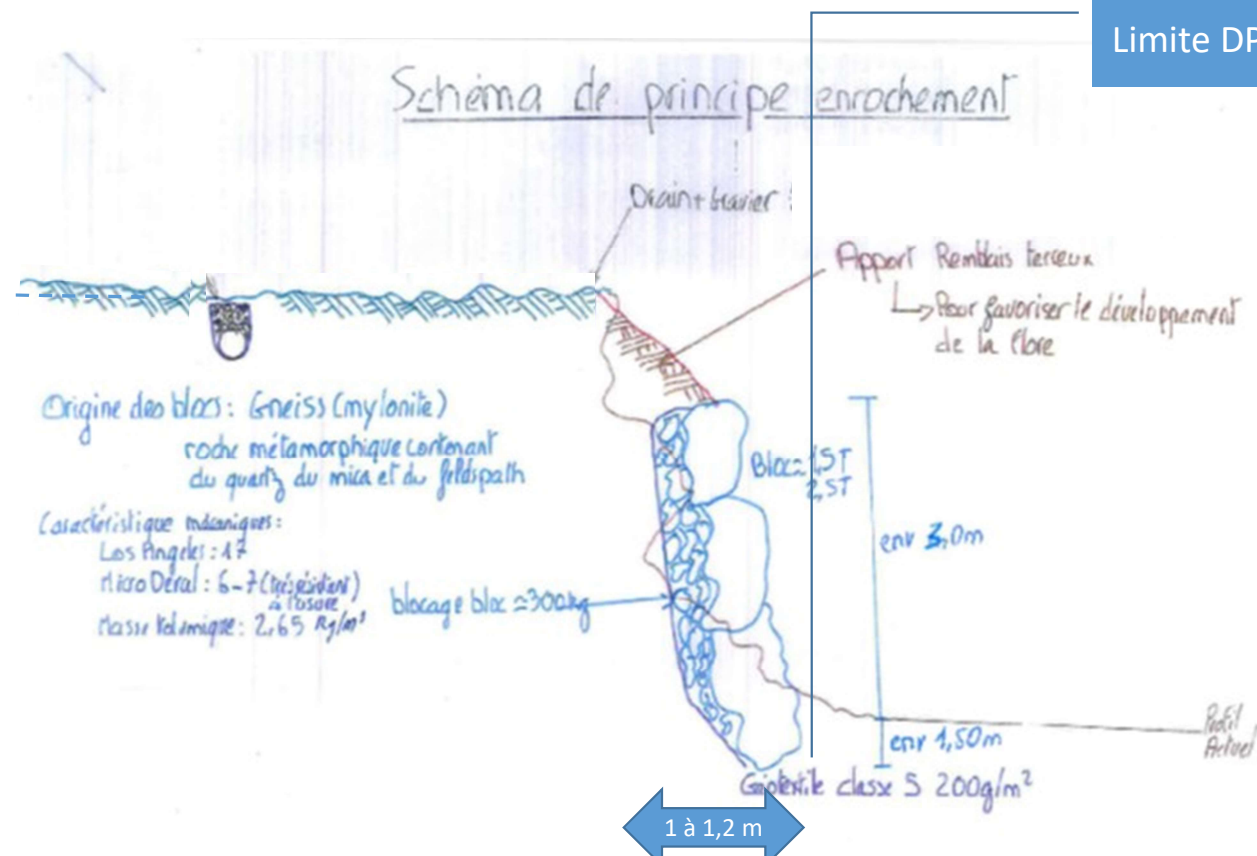 Limite DP
Schéma de principe enrochement
Drain + Gravier
Apport Remblais terreux
Pour favoriser le développement
de la flore
Origine des blocs : Gneiss (mylonite)
roche métamorphique contenant
du quartz du mica et du feldspath
Caractéristique mécaniques :
Los Angeles : 17
Micro Déval : 6-7 (très résistant)
à l'usure
Masse Volumique : 2,65 Kg/m³
Bloc ≈ 1,5T
2,5T
env 3,0m
blocage bloc ≈ 300kg
Profil
Actuel
env 1,50m
Géotextile classe 5 200g/m²
1 à 1,2 m